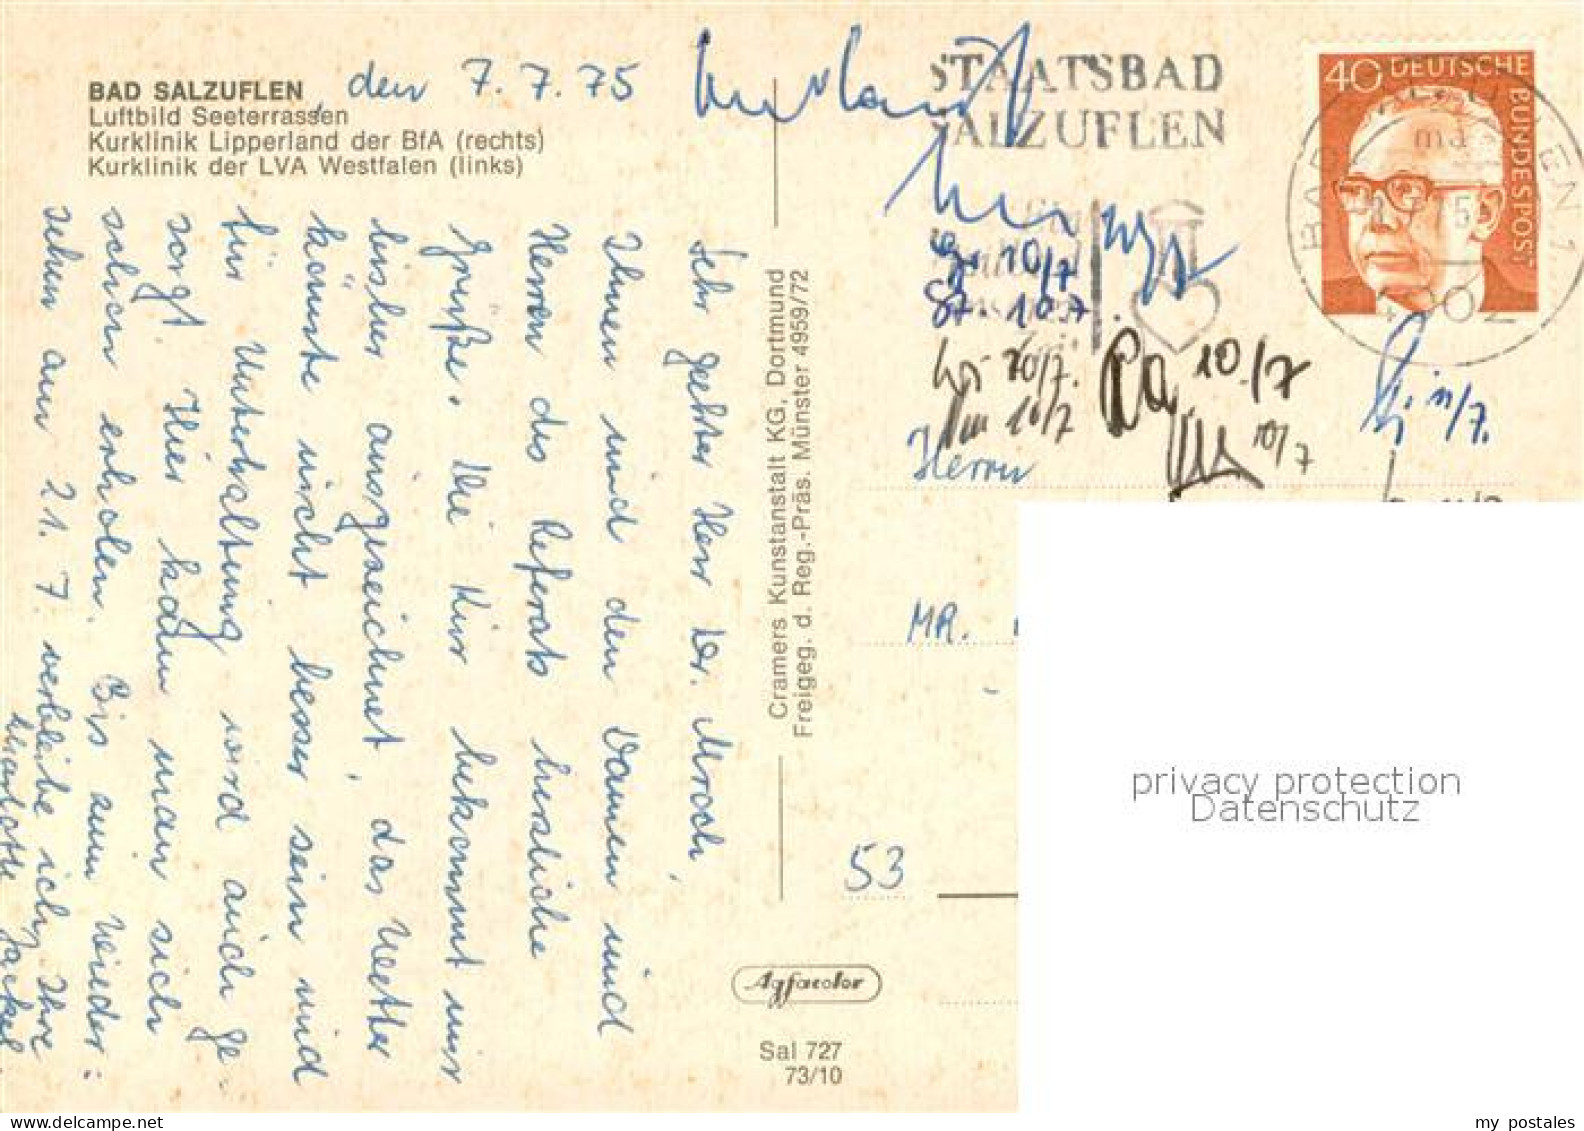 BAD SALZUFLEN
den 7.7.75
Luftbild Seeterrassen
Kurklinik Lipperland der BfA (rechts)
Kurklinik der LVA Westfalen (links)
Sehr geehrter Herr Dr. Mroch,
Ihnen und den Damen und
Herren des Referats herzliche
Grüße. Die Kur bekommt mir
bisher ausgezeichnet, das Wetter
könnte nicht besser sein und
für Unterhaltung wird auch ge-
sorgt. Hier kann man sich
schon erholen. Bis zum Wieder-
sehen am 21.7. verbleibe ich, Ihre
Cramers Kunstanstalt KG, Dortmund
Freigeg. d. Reg.-Präs. Münster 4959/72
Agfacolor
Sal 727
73/10
STAATSBAD
SALZUFLEN
40 DEUTSCHE
BUNDESPOST
BAD SALZUFLEN 1
ma
4902
10/7
10.7.
10/7.
10/7
10./7
10/7
11/7.
Herrn
MR.
53
privacy protection
Datenschutz
my postales